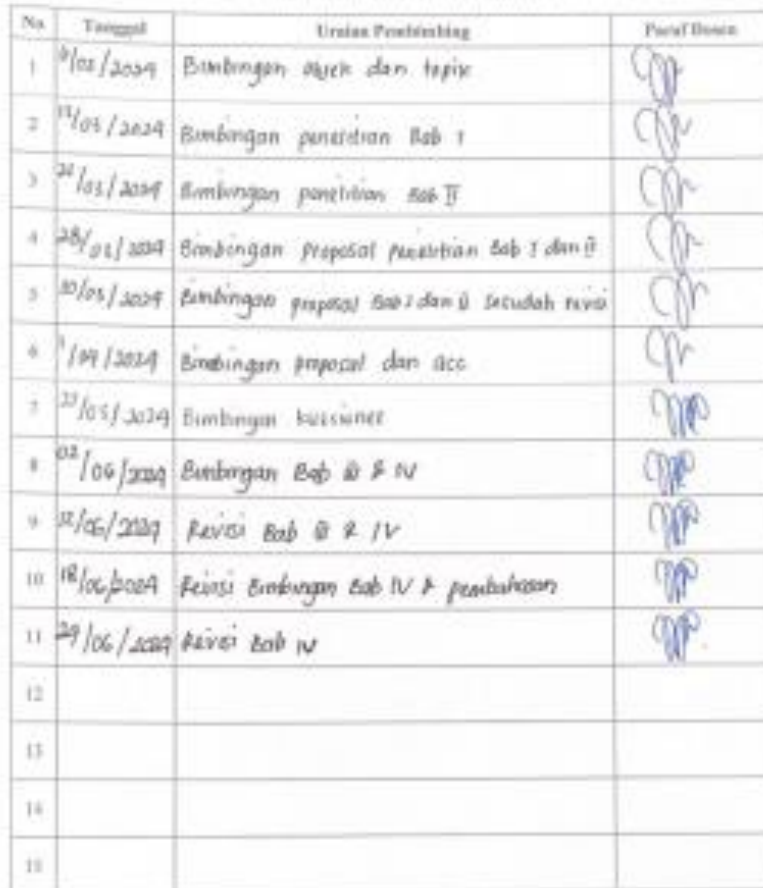 No Tanggal Uraian Pembimbing Paraf Dosen
1 /03/2024 Bimbingan objek dan topik
2 /03/2024 Bimbingan penelitian Bab 1
3 /03/2024 Bimbingan penelitian Bab II
4 28/03/2024 Bimbingan proposal penelitian Bab I dan II
5 30/03/2024 Bimbingan proposal Bab I dan II sesudah revisi
6 /04/2024 Bimbingan proposal dan acc
7 /05/2024 Bimbingan kuesioner
8 02/06/2024 Bimbingan Bab III & IV
9 12/06/2024 Revisi Bab III & IV
10 18/06/2024 Revisi Bimbingan Bab IV & pembahasan
11 29/06/2024 Revisi Bab IV
12
13
14
15